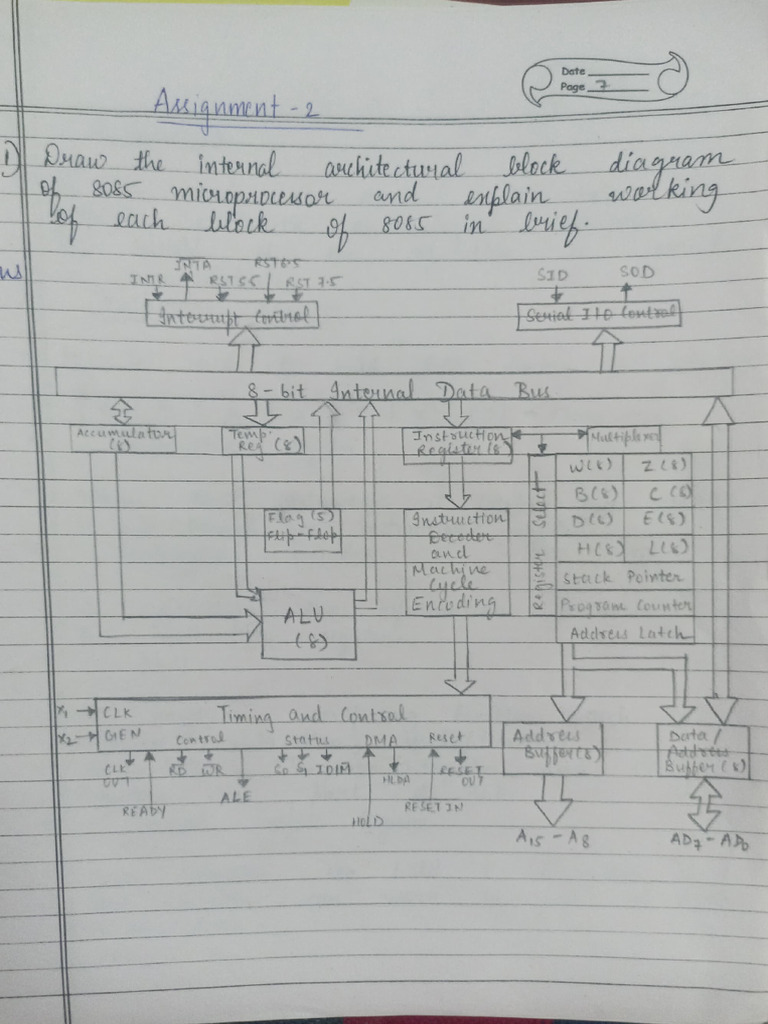 Date
Page 7
Assignment - 2
1) Draw the internal architectural block diagram
of 8085 microprocessor and explain working
of each block of 8085 in brief.
INTA RST 6.5
INTR RST 5.5 RST 7.5
SID SOD
Interrupt Control
Serial I/O Control
8-bit Internal Data Bus
Accumulator
(8)
Temp.
Reg (8)
Instruction
Register (8)
Multiplexer
Register Select
W(8) Z(8)
B(8) C(8)
D(8) E(8)
H(8) L(8)
Stack Pointer
Program Counter
Address Latch
Flag (5)
Flip-Flop
Instruction
Decoder
and
Machine
Cycle
Encoding
ALU
(8)
X1 CLK
X2 GEN
Timing and Control
Control Status DMA Reset
CLK
OUT
READY
RD WR
ALE
S0 S1 IO/M
HOLD
HLDA
RESET IN
RESET
OUT
Address
Buffer (8)
Data/
Address
Buffer (8)
A15 - A8
AD7 - AD0